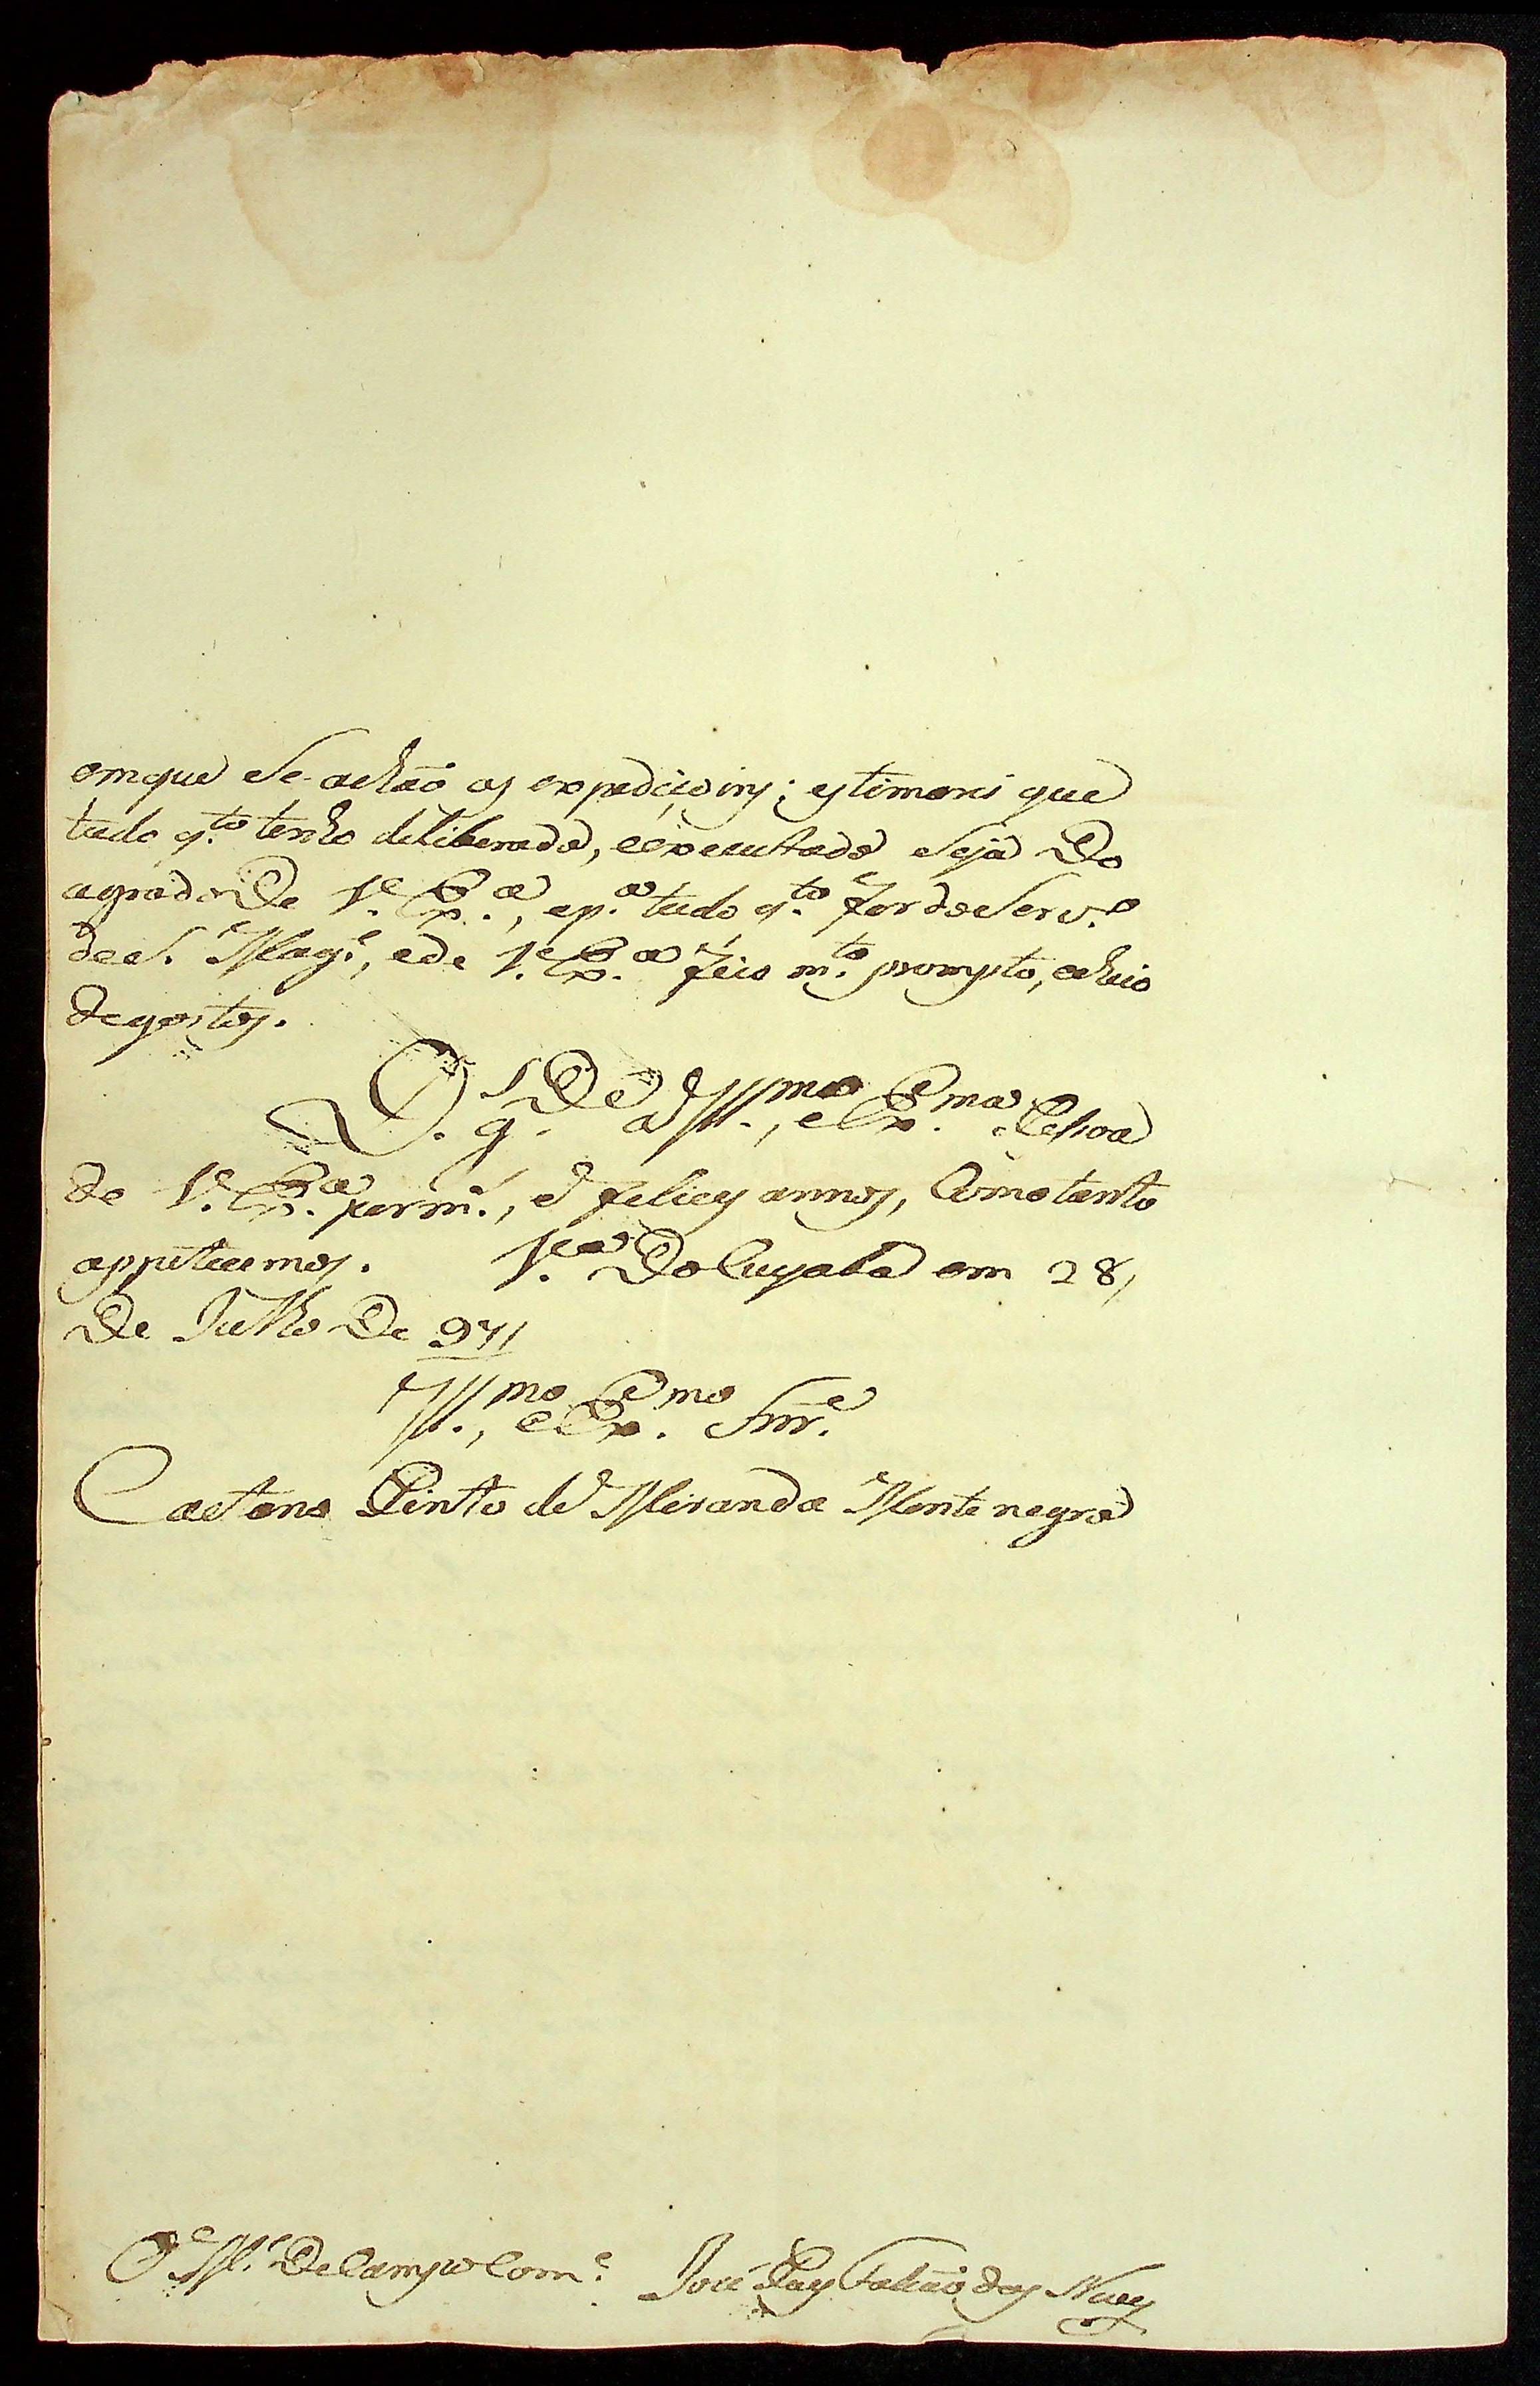 emque Se achaõ as expediçoins; estimarei que
tudo q.to tenho deliberado, eexecutado Seja Do
agrado De V. Ex.a, ep.a tudo q.to for do Serv.o
de S. Mag.e, ede V. Ex.a fico m.to prompto, echeio
de gostos.
D.s g.de a Ill.ma, e Ex.ma Pessoa
de V. Ex.a por m.s, e felices annos, Como tanto
appetecemos. V.a Do Cuyabá em 28
De Julho De 97
Ill.mo e Ex.mo Snr.e
Caetano Pinto de Miranda Montenegro
O M.e De Campo Com.e José Paes Falcaõ das Neves